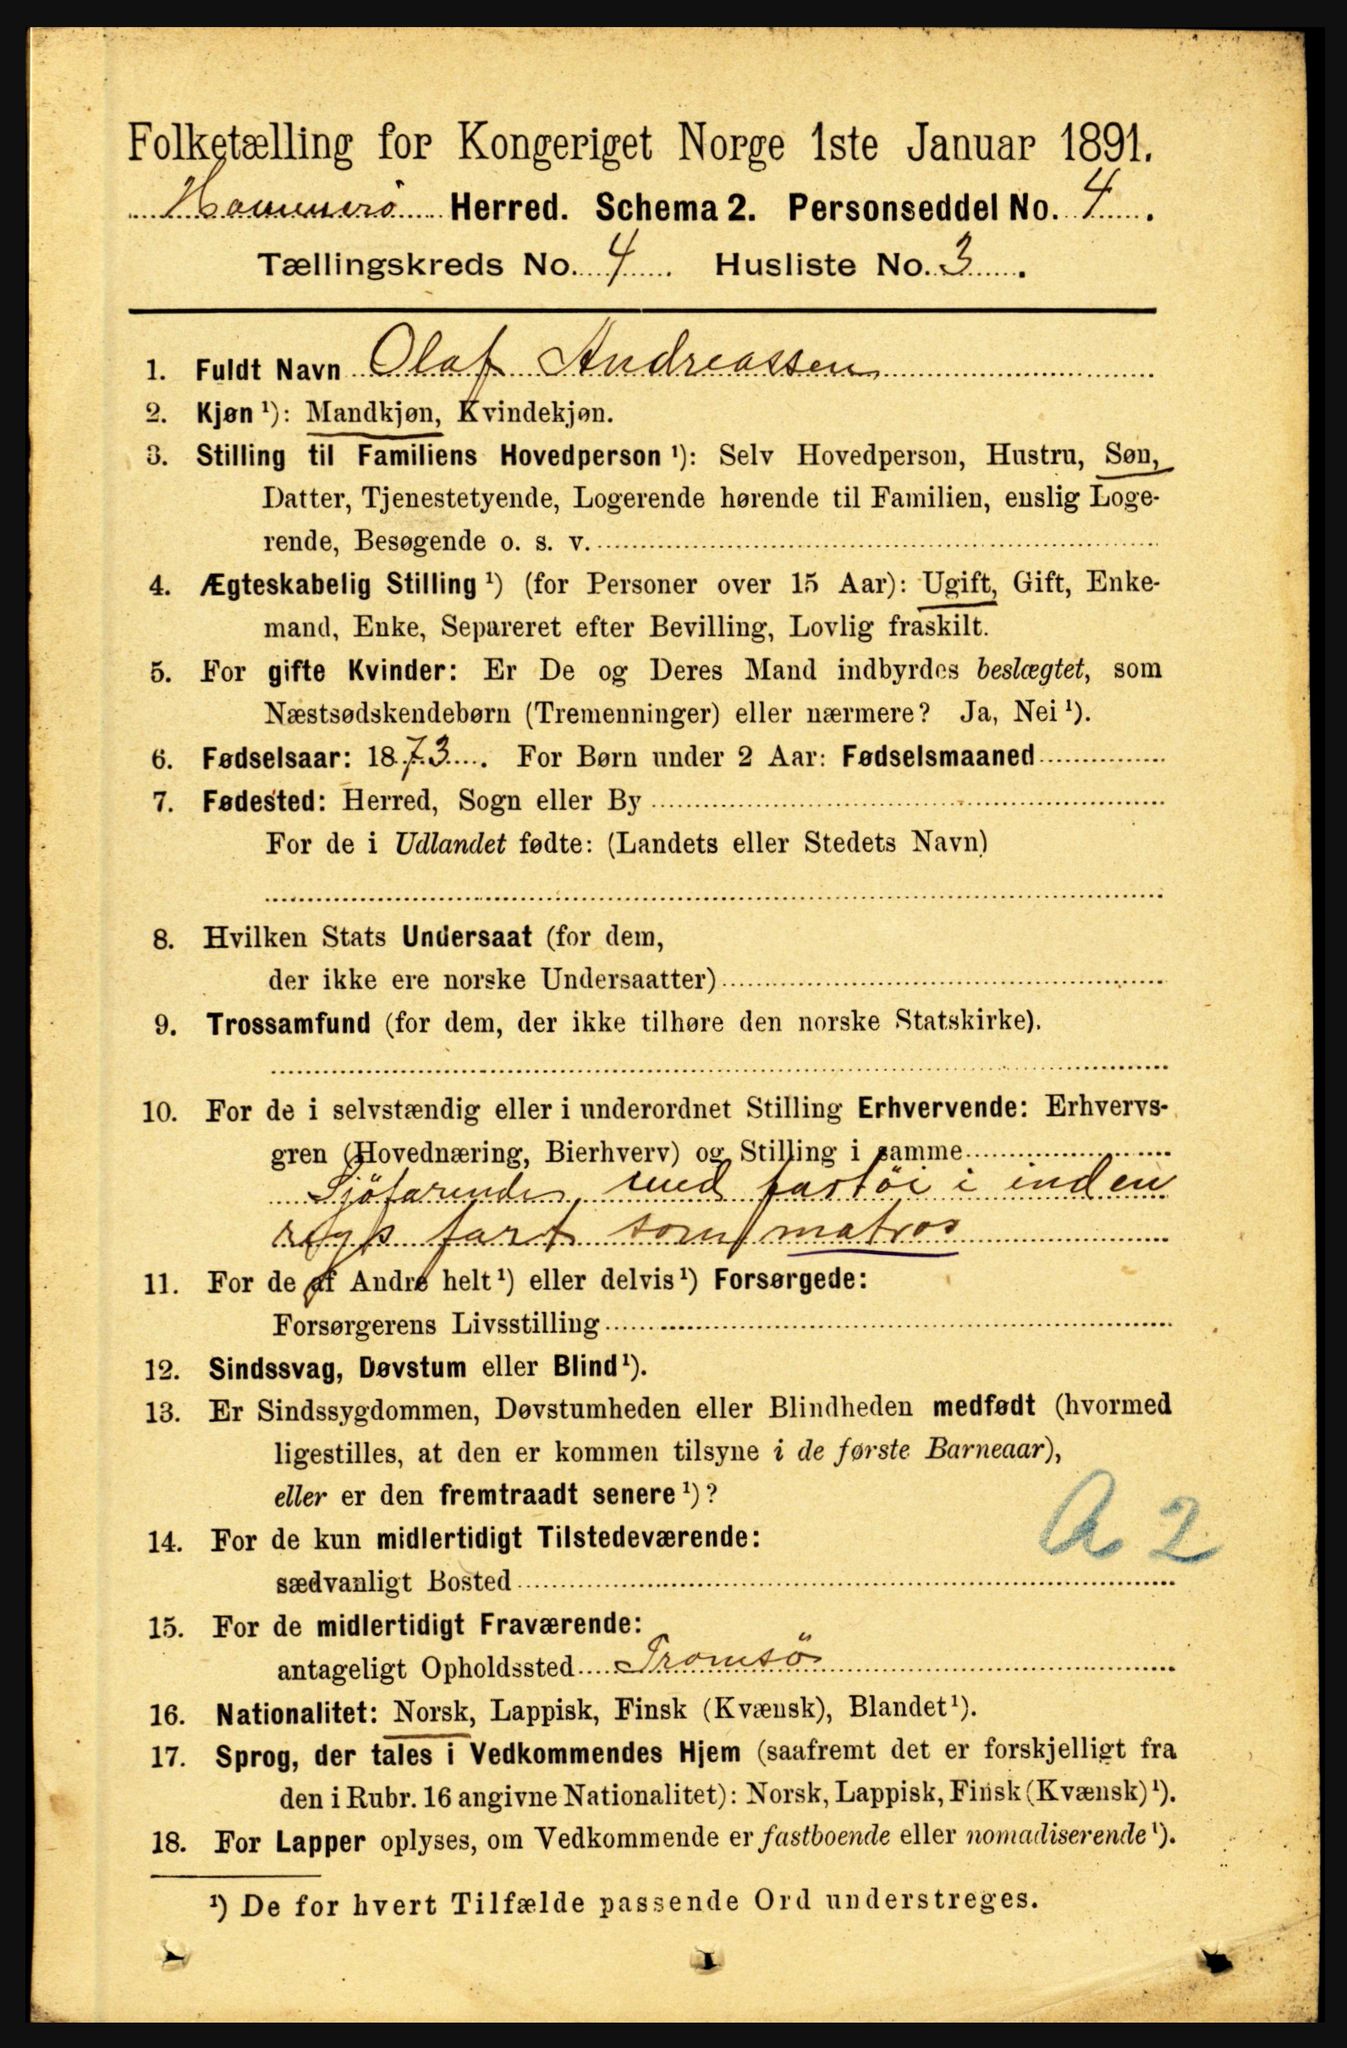 Folketælling for Kongeriget Norge 1ste Januar 1891.
Hammerö Herred. Schema 2. Personseddel No. 4.
Tællingskreds No. 4. Husliste No. 3.
1. Fuldt Navn Olaf Andreassen
2. Kjøn ¹): Mandkjøn, Kvindekjøn.
3. Stilling til Familiens Hovedperson ¹): Selv Hovedperson, Hustru, Søn,
Datter, Tjenestetyende, Logerende hørende til Familien, enslig Loge-
rende, Besøgende o. s. v.
4. Ægteskabelig Stilling ¹) (for Personer over 15 Aar): Ugift, Gift, Enke-
mand, Enke, Separeret efter Bevilling, Lovlig fraskilt.
5. For gifte Kvinder: Er De og Deres Mand indbyrdes beslægtet, som
Næstsødskendebørn (Tremenninger) eller nærmere? Ja, Nei ¹).
6. Fødselsaar: 1873. For Børn under 2 Aar: Fødselsmaaned
7. Fødested: Herred, Sogn eller By
For de i Udlandet fødte: (Landets eller Stedets Navn)
8. Hvilken Stats Undersaat (for dem,
der ikke ere norske Undersaatter)
9. Trossamfund (for dem, der ikke tilhøre den norske Statskirke).
10. For de i selvstændig eller i underordnet Stilling Erhvervende: Erhvervs-
gren (Hovednæring, Bierhverv) og Stilling i samme
Sjöfarende med fartöi i inden
rigs fart som matros
11. For de af Andre helt ¹) eller delvis ¹) Forsørgede:
Forsørgerens Livsstilling
12. Sindssvag, Døvstum eller Blind ¹).
13. Er Sindssygdommen, Døvstumheden eller Blindheden medfødt (hvormed
ligestilles, at den er kommen tilsyne i de første Barneaar),
eller er den fremtraadt senere ¹)?
A 2
14. For de kun midlertidigt Tilstedeværende:
sædvanligt Bosted
15. For de midlertidigt Fraværende:
antageligt Opholdssted Tromsö
16. Nationalitet: Norsk, Lappisk, Finsk (Kvænsk), Blandet ¹).
17. Sprog, der tales i Vedkommendes Hjem (saafremt det er forskjelligt fra
den i Rubr. 16 angivne Nationalitet): Norsk, Lappisk, Finsk (Kvænsk) ¹).
18. For Lapper oplyses, om Vedkommende er fastboende eller nomadiserende ¹).
¹) De for hvert Tilfælde passende Ord understreges.